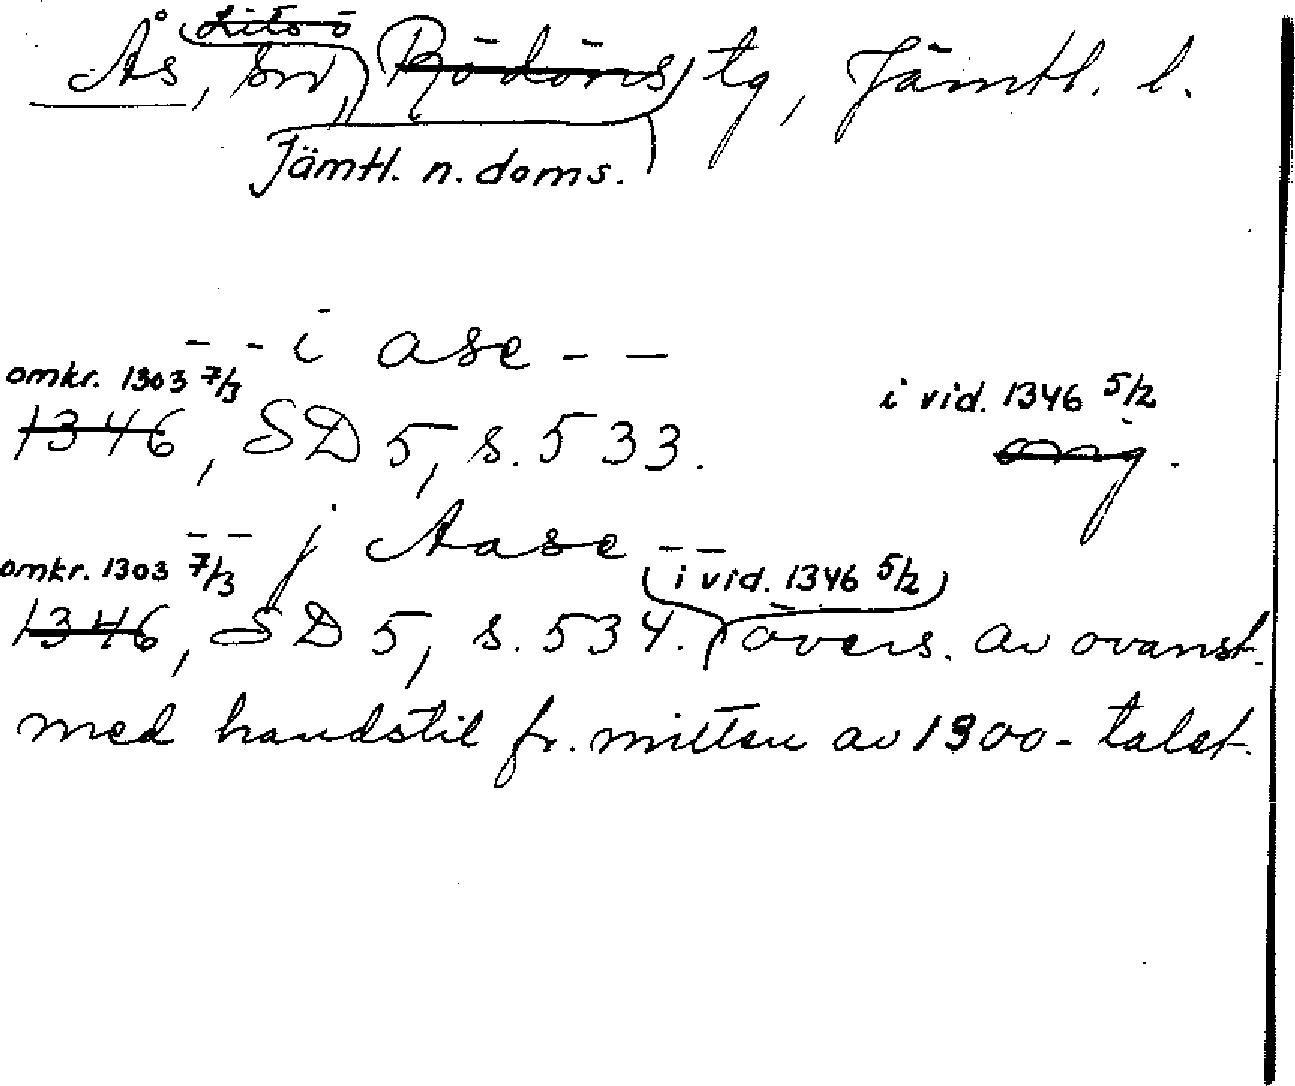 Lits o
Ås, sn, Rödöns tg, Jämtl. l.
Jämtl. n. doms.
- - i ase - -
omkr. 1303 7/3 i vid. 1346 5/2
1346, SD 5, s. 533.
- - j Aase - -
omkr. 1303 7/3 i vid. 1346 5/2
1346, SD 5, s. 534. övers. av ovanst.
med handstil fr. mitten av 1300-talet.